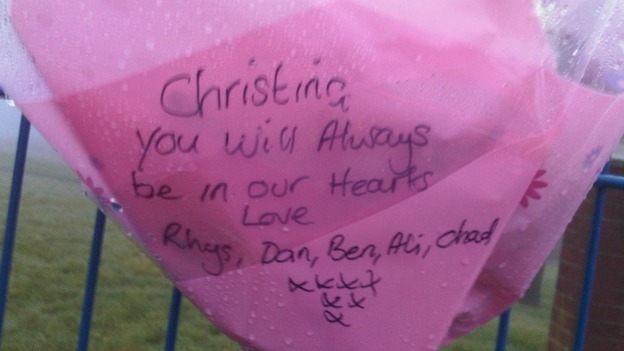 Christina
You Will Always
be in our Hearts
Love
Rhys, Dan, Ben, Ali, Chad
xxxx
xx
x